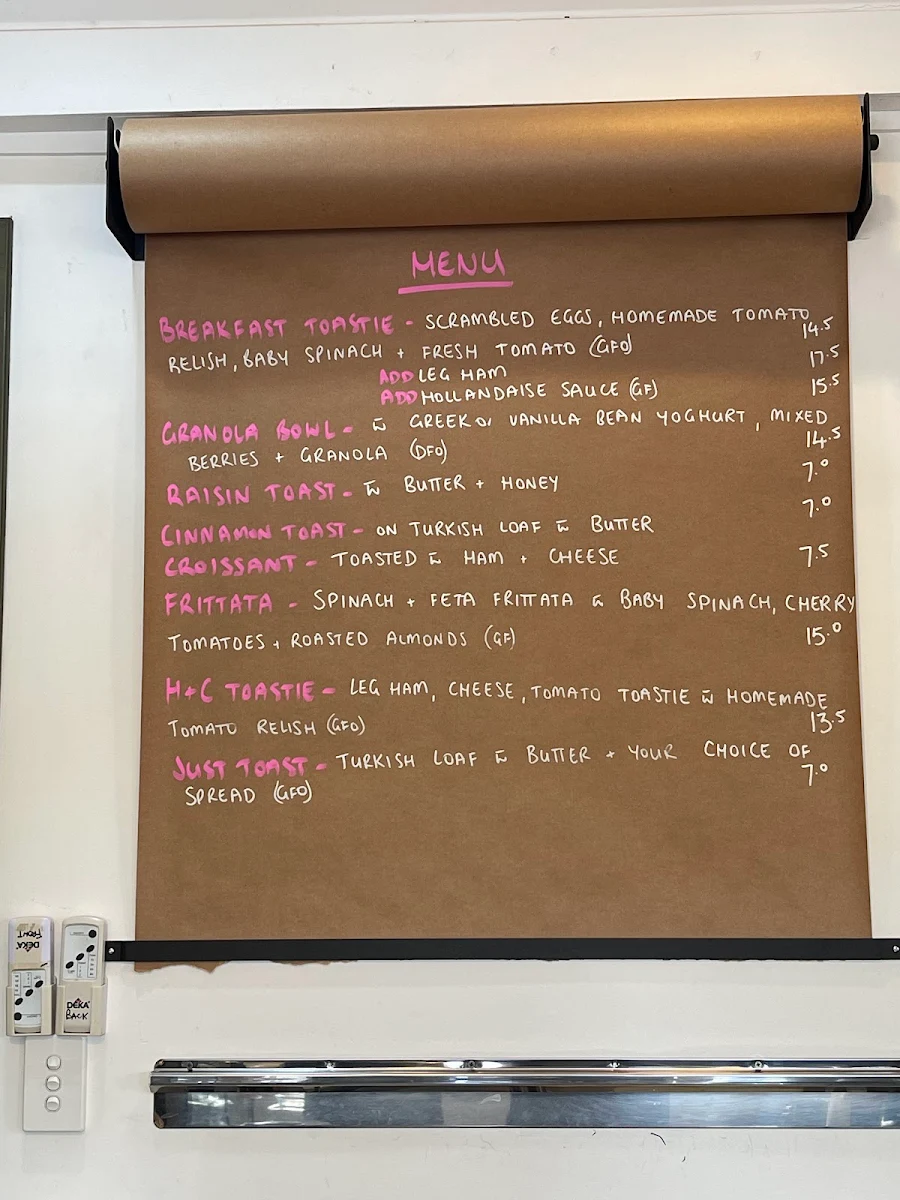 MENU
BREAKFAST TOASTIE - SCRAMBLED EGGS, HOMEMADE TOMATO
14.5
RELISH, BABY SPINACH + FRESH TOMATO (GFO)
17.5
ADD LEG HAM
ADD HOLLANDAISE SAUCE (GF)
15.5
GRANOLA BOWL - W GREEK OR VANILLA BEAN YOGHURT, MIXED
BERRIES + GRANOLA (DFO)
14.5
RAISIN TOAST - W BUTTER + HONEY
7.0
CINNAMON TOAST - ON TURKISH LOAF W BUTTER
7.0
CROISSANT - TOASTED W HAM + CHEESE
7.5
FRITTATA - SPINACH + FETA FRITTATA W BABY SPINACH, CHERRY
TOMATOES + ROASTED ALMONDS (GF)
15.0
H+C TOASTIE - LEG HAM, CHEESE, TOMATO TOASTIE W HOMEMADE
TOMATO RELISH (GFO)
13.5
JUST TOAST - TURKISH LOAF W BUTTER + YOUR CHOICE OF
7.0
SPREAD (GFO)
DEKA
FRONT
DEKA
BACK